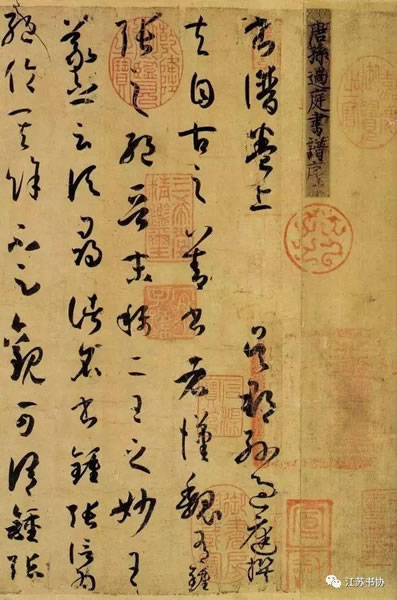 唐孫過庭書譜序
書譜卷上 吳郡孫過庭撰
夫自古之善書者漢魏有鍾
張之絕晉末稱二王之妙王
羲之云頃尋諸名書鍾張信為
絕倫其餘不足觀可謂鍾張
三希堂精鑑璽
宜子孫
江苏书协